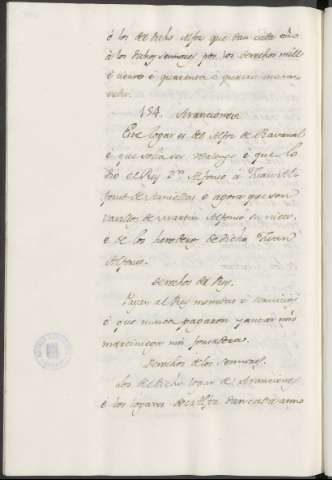 é los de dicho Alfoz que dan cada año
á los dichos Sennores por sus derechos mill
é
é quarenta é quatro marave-
vedis.
154. Arancionera
Este logar es del Alfoz de Ravanal
é que solia ser realengo é que lo
dió el Rey Dn. Alfonso á
é agora que son
vasallos de Martin Alfonso su nieto,
é de los herederos de dicho Juan
Alfonso.
Derechos del Rey.
Pagan al Rey monedas é servicios
é que nunca pagaron yantar nin
martiniega nin fonsadera.
Derechos de los Sennores.
Los de dicho logar de
é los logares del Alfoz dan cada anno